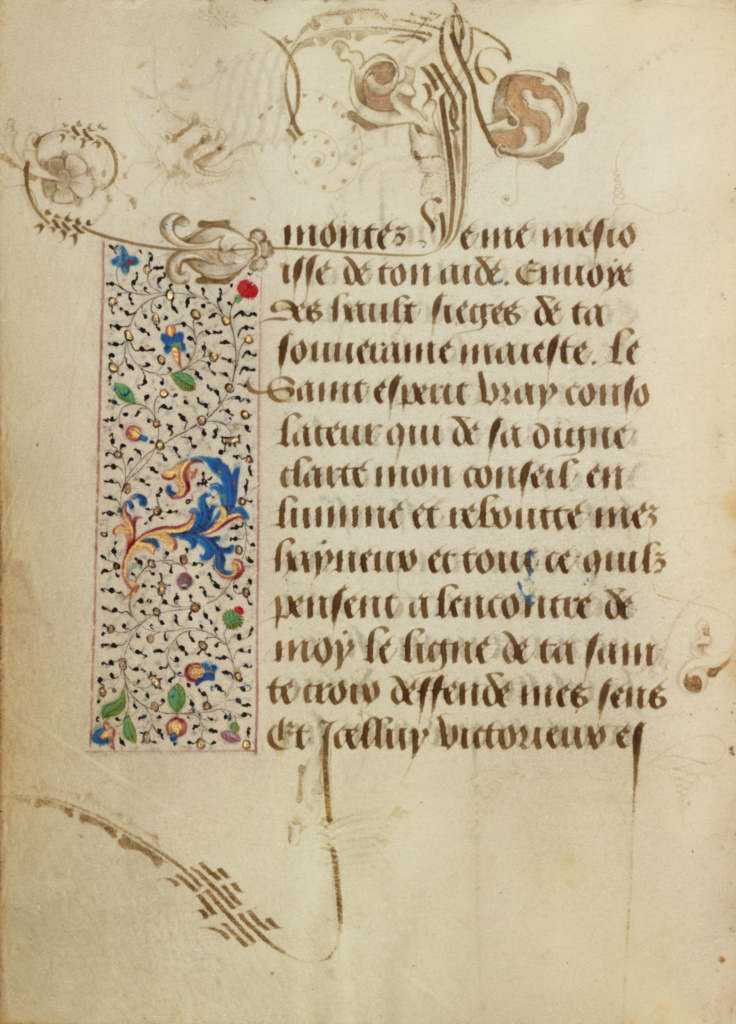 montez Ve me mesio
isse de ton aide. Enuoye
des hault sieges de ta
souueraine maieste. Le
Saint esperit vray conso
lateur qui de sa digne
clarte mon conseil en
lumine et reboutte mez
hayneux et tout ce quilz
pensent a lencontre de
moy le ligne de ta sain
te croix deffende mes sens
Et Jcelluy victorieux es